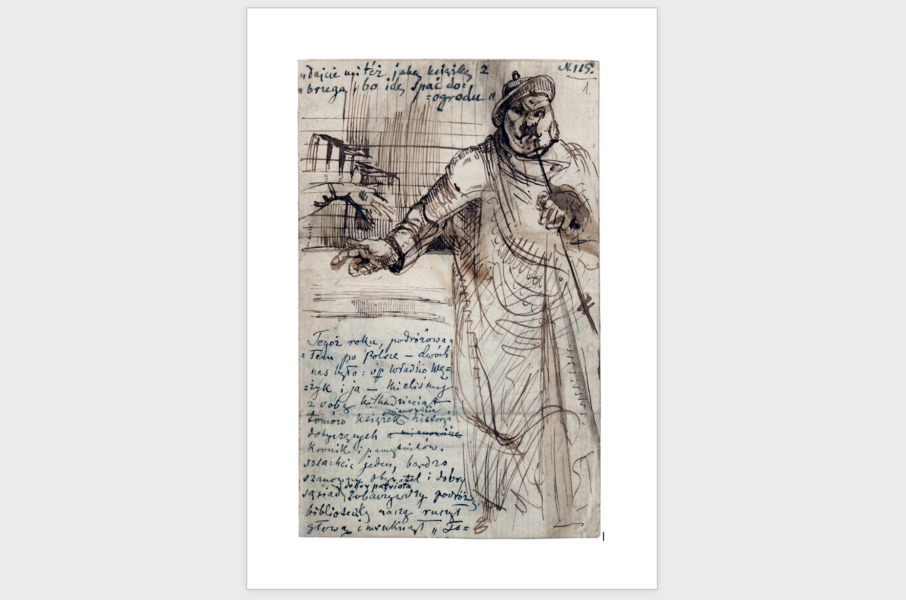 „dajcie mi też jaką książkę z
„brzega, bo idę spać do=
=ogrodu"
N. 115.
1.
Tegoż roku, podróżowa=
=łem po Polsce – dwóch
nas było: śp Władzio Wę=
=żyk i ja – mieliśmy
z sobą kilkadziesiąt
tomów książek histor
dotyczących mianowicie
Kronik i pamiętników.
szlachcic jeden, bardzo
szanowny obywatel i dobry
i dobry patriota
sąsiad, zobaczywszy podróżną
biblioteczkę naszą ruszył
głową i mruknął „To=